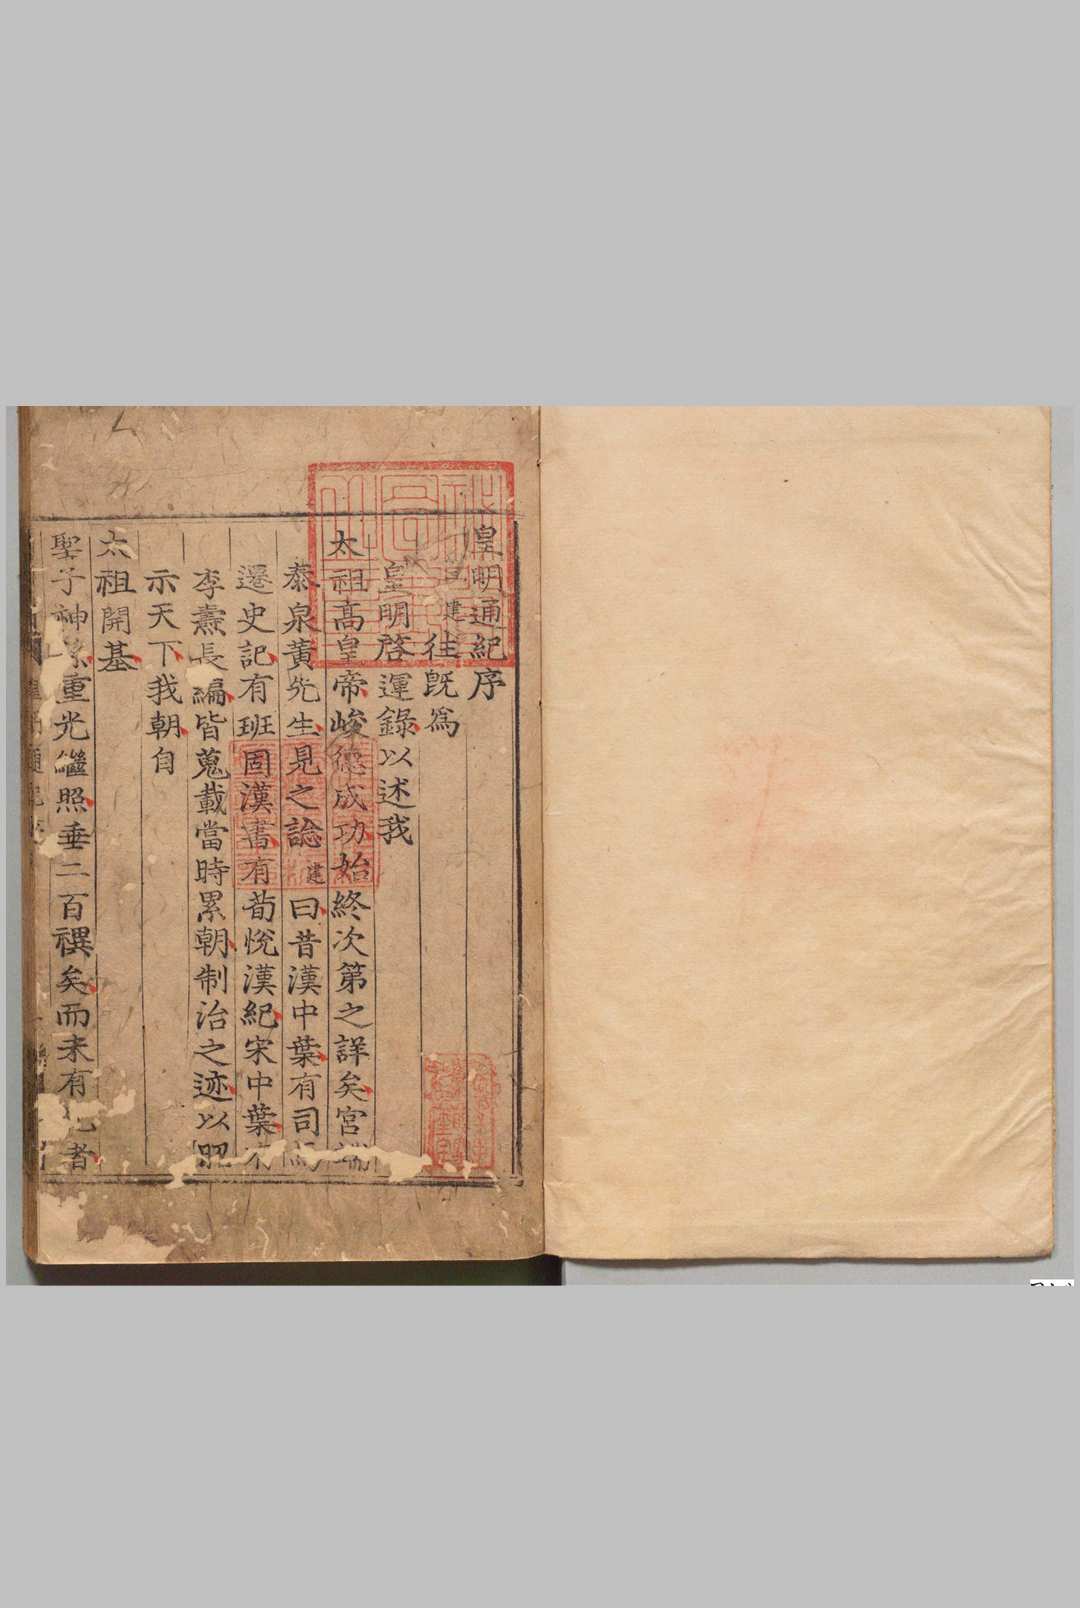 皇明通紀序
建往旣爲
皇明啓運錄以述我
太祖高皇帝峻德成功始終次第之詳矣宮端
泰泉黃先生見之諗建曰昔漢中葉有司馬
遷史記有班固漢書有荀悅漢紀宋中葉有
李燾長編皆蒐載當時累朝制治之迹以昭
示天下我朝自
太祖開基
聖子神孫重光繼照垂二百禩矣而未有紀者